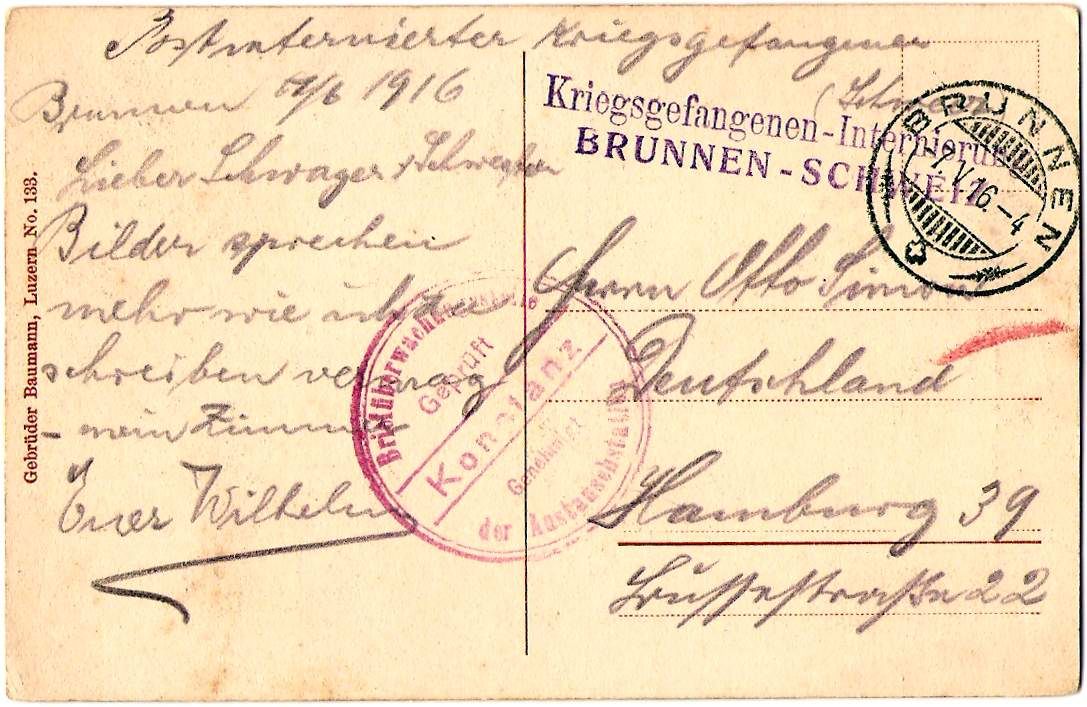 Postinternierter Kriegsgefangener
(Schweiz)
Brunnen 1916
Lieber Schwager & Schwester
Bilder sprechen
mehr wie ich
schreiben vermag
– mein Zimmer
Euer Wilhelm
Gebrüder Baumann, Luzern No. 133.
Kriegsgefangenen-Internierung
BRUNNEN-SCHWEIZ
BRUNNEN
V 16.-4
Herrn Otto
Deutschland
Hamburg 39
22
Briefüberwachungsstelle
Geprüft
Konstanz
Genehmigt
der Austauschstation